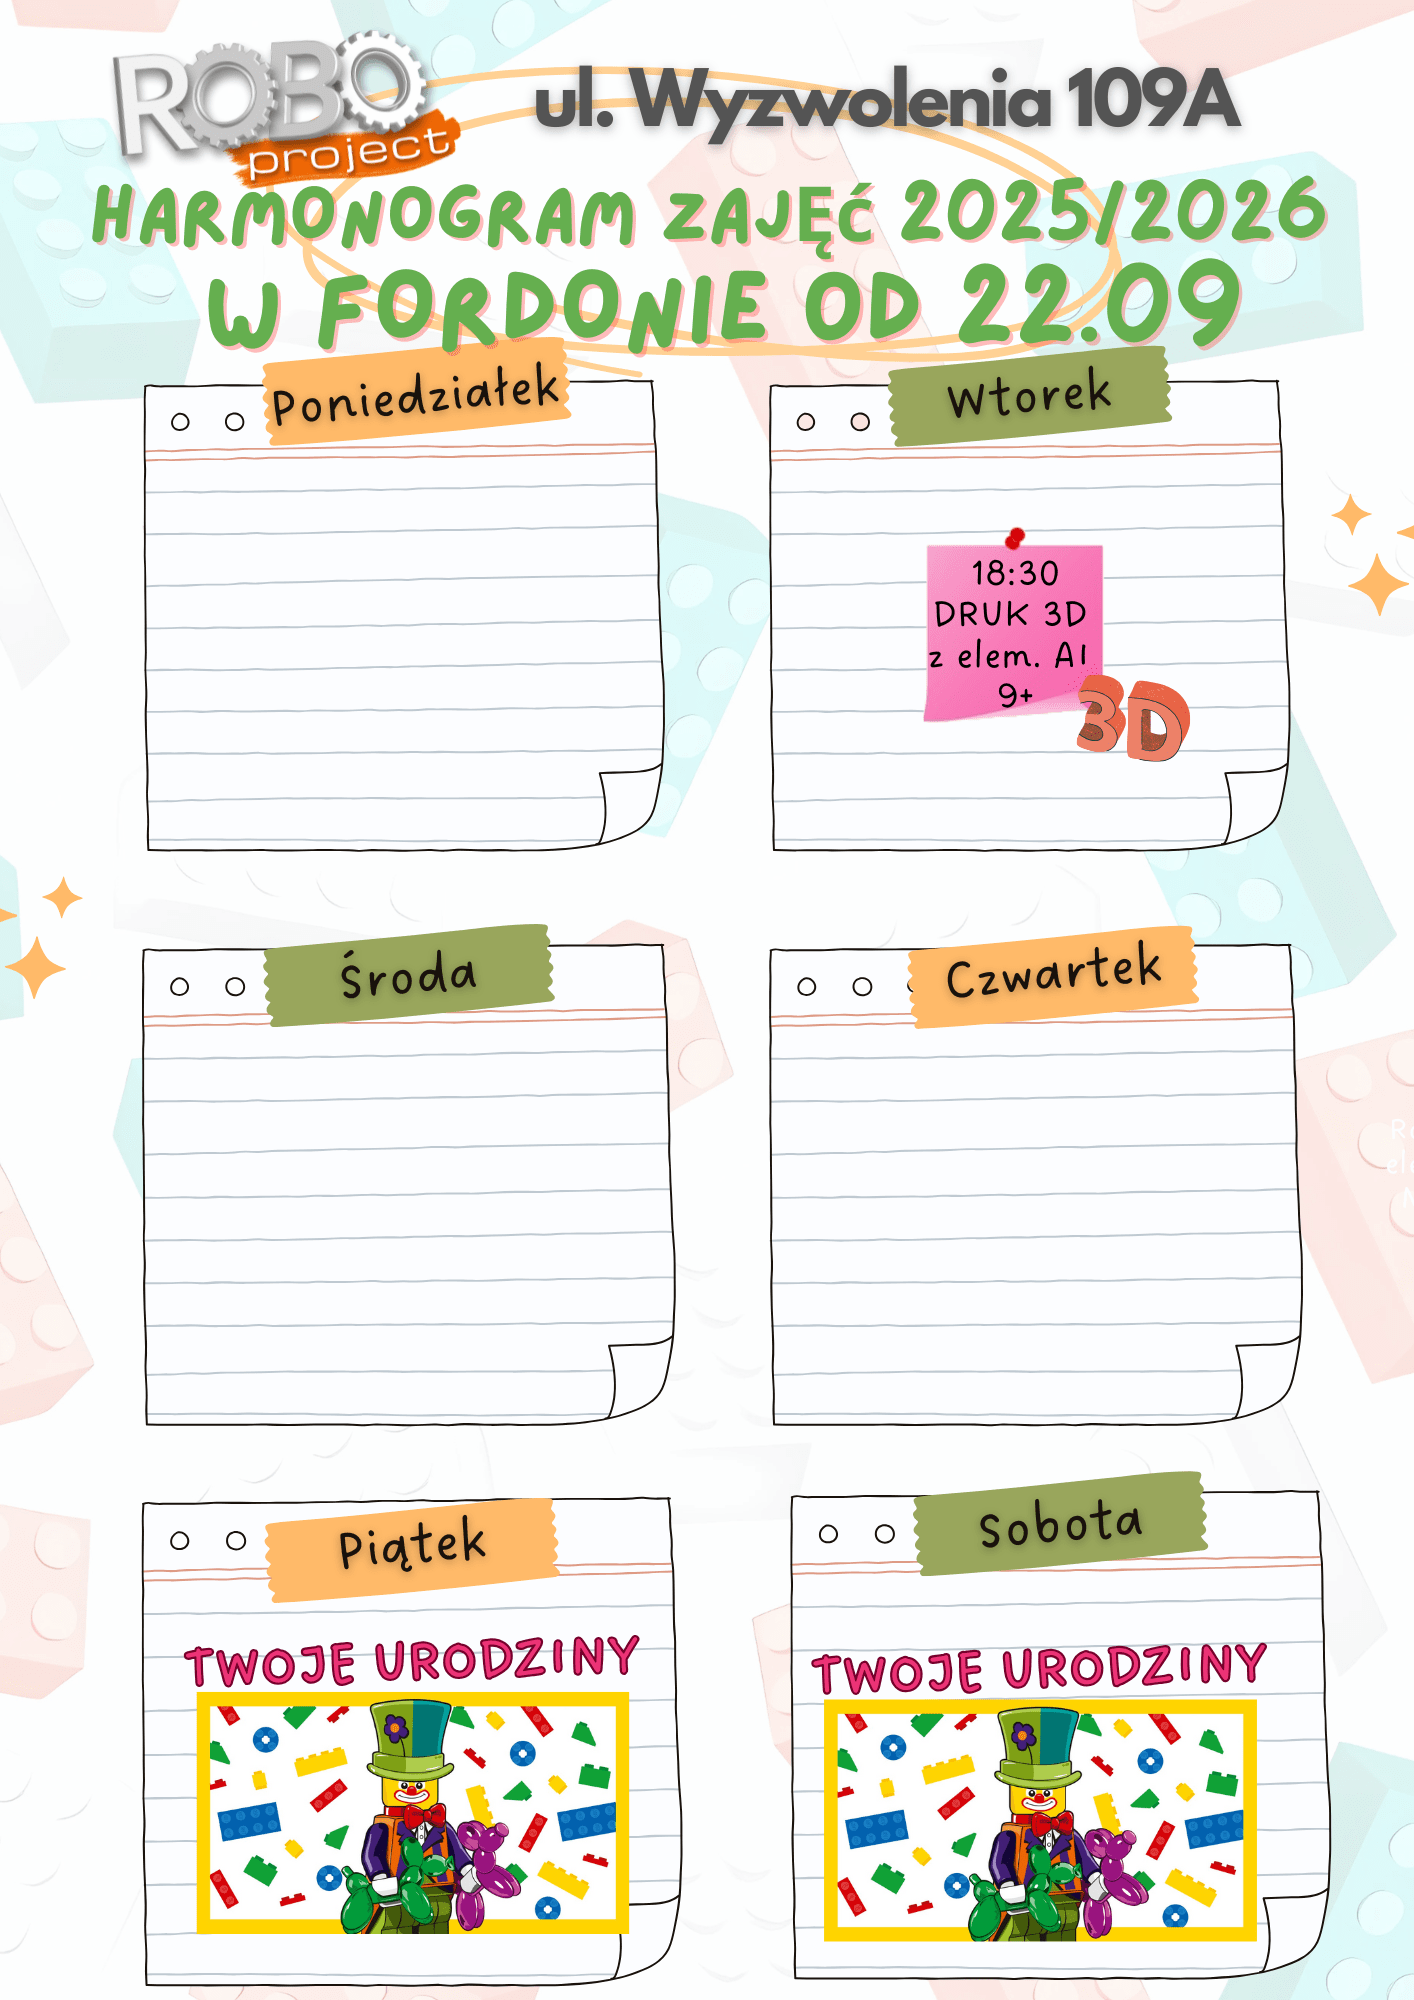 ROBO
project
ul. Wyzwolenia 109A
HARMONOGRAM ZAJĘĆ 2025/2026
W FORDONIE OD 22.09
Poniedziałek
Wtorek
18:30
DRUK 3D
z elem. AI
9+
3D
Środa
Czwartek
Piątek
Sobota
TWOJE URODZINY
TWOJE URODZINY